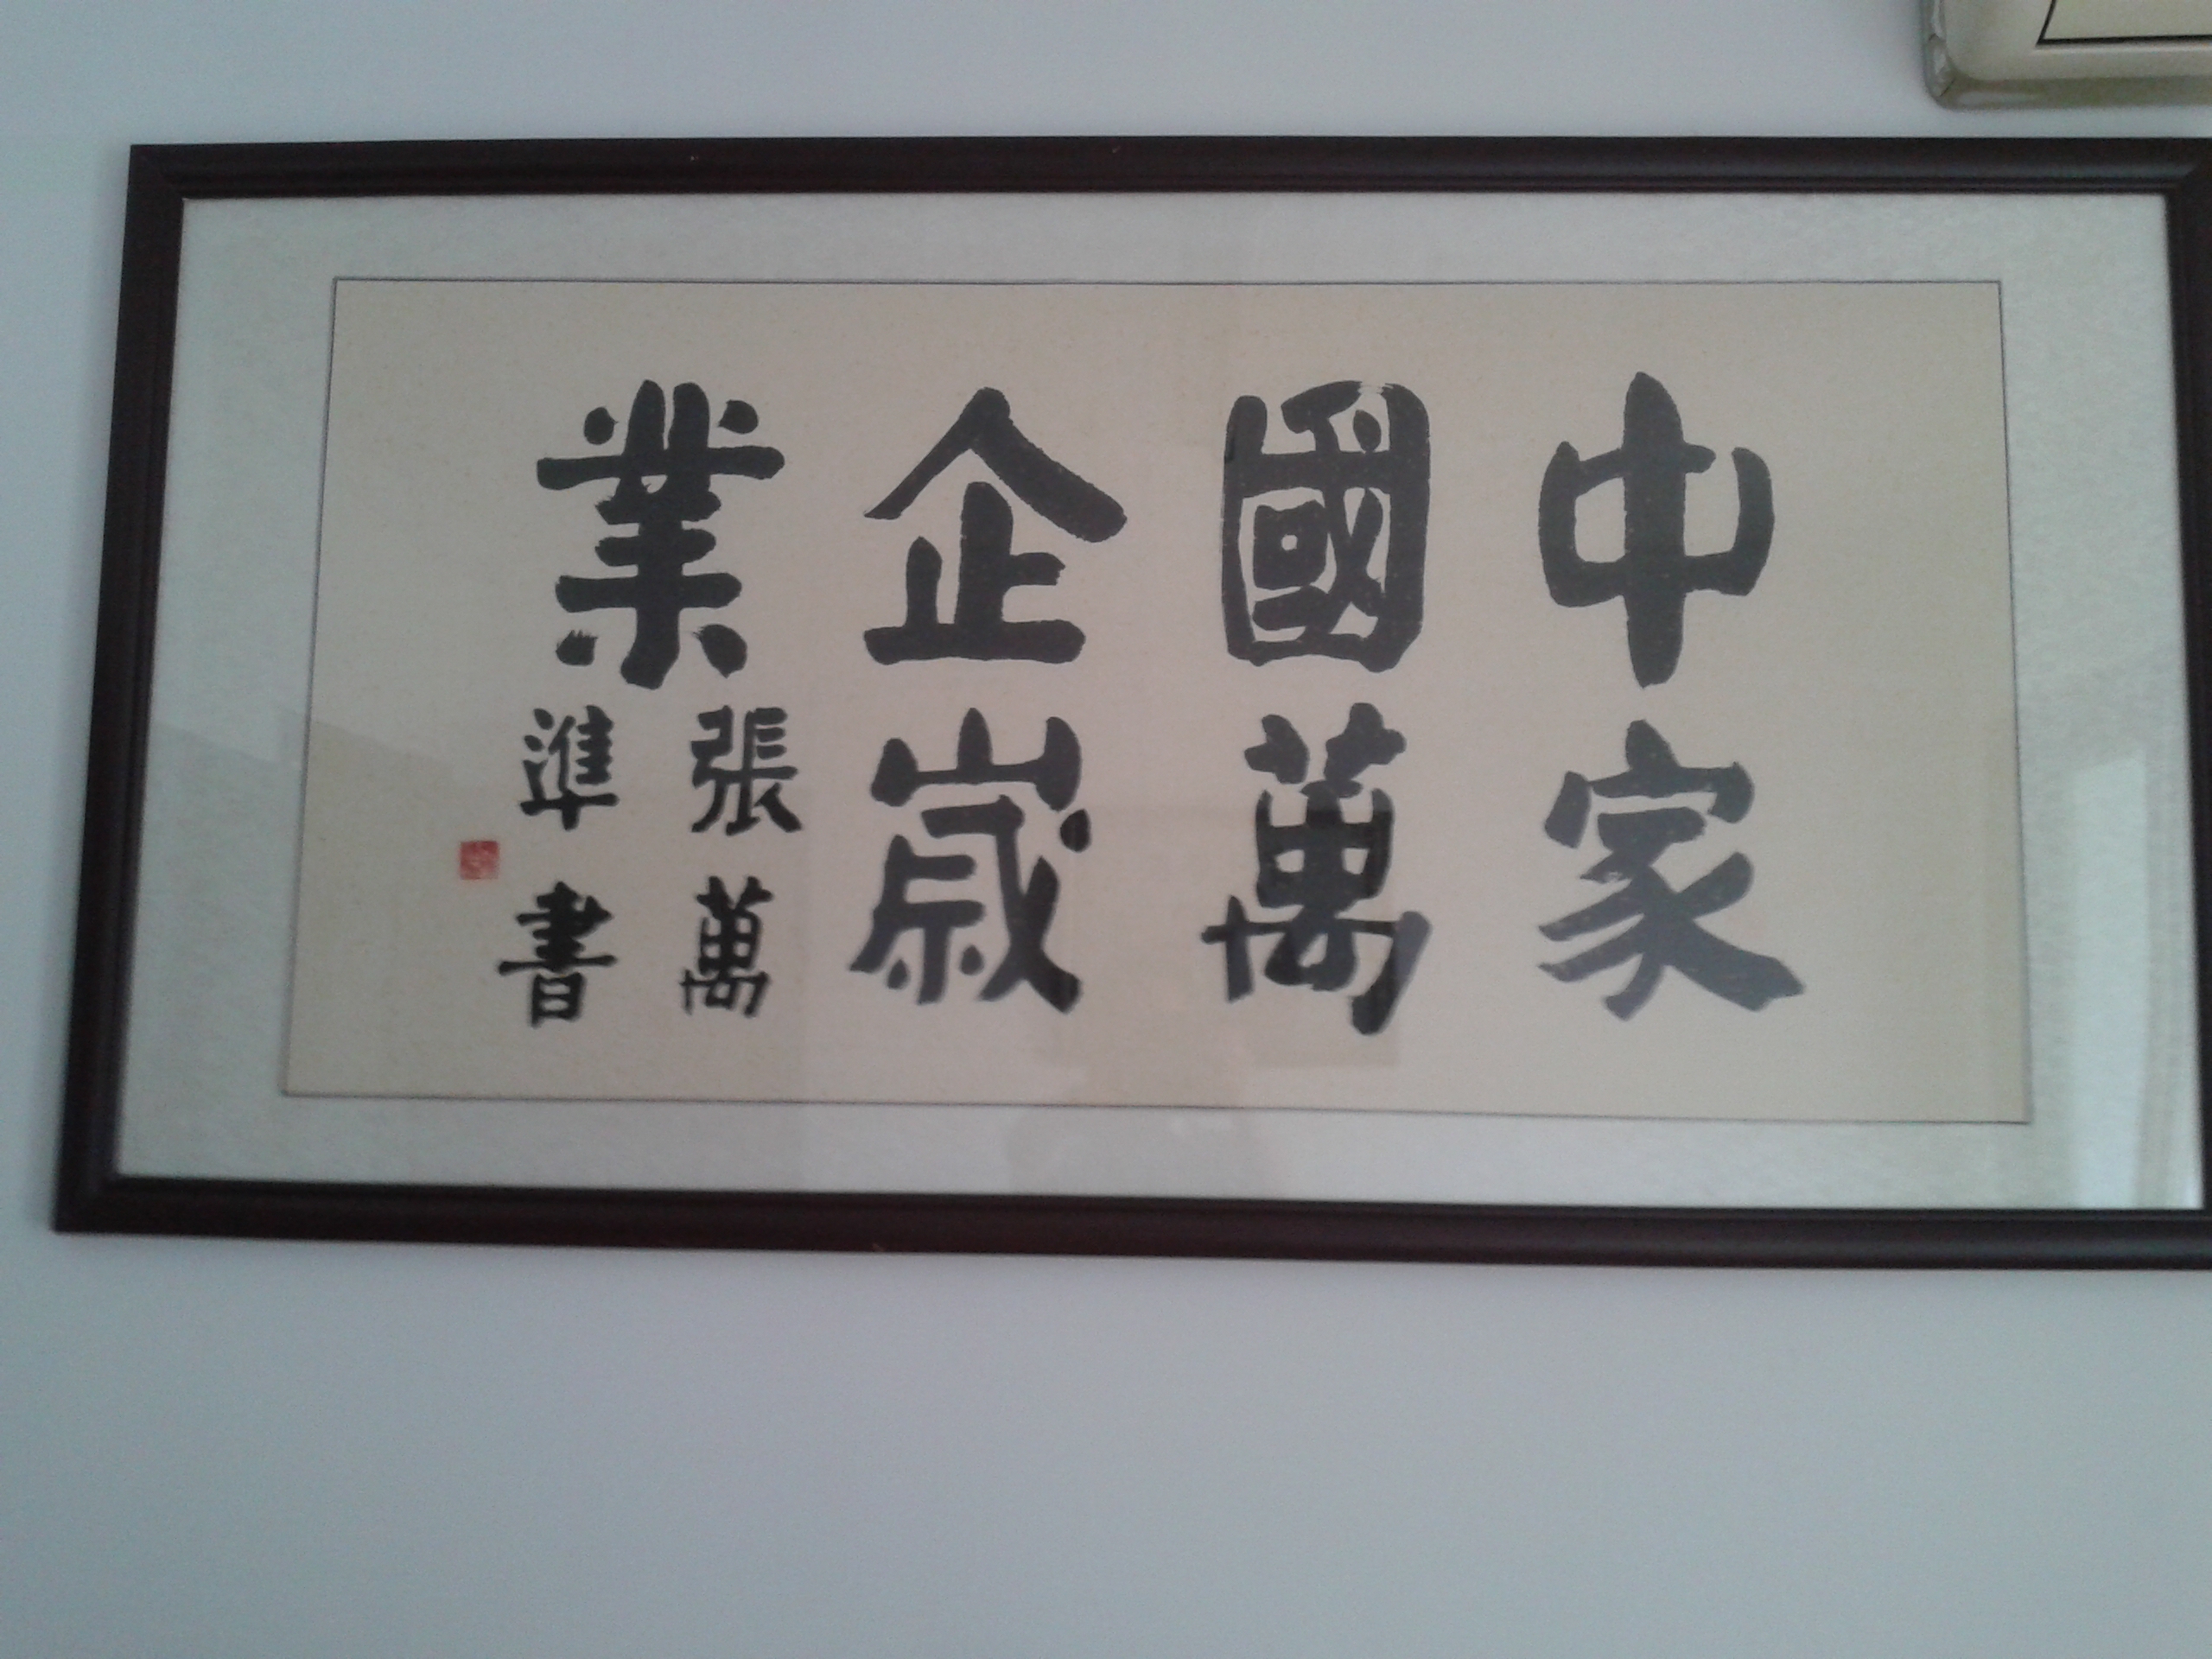 中國企業
家萬歲
張萬
準書